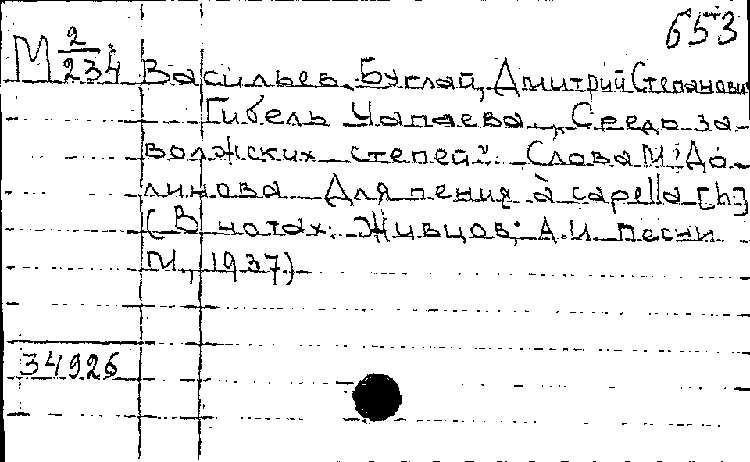 653
М 2/234
Васильев-Буглай, Дмитрий Степанович
Гибель Чапаева. „Средь за-
волжских степей". Слова М. До-
линова Для пения à capella [h]
(В нотах: Живцов, А.И. Песни
М., 1937.)
34926